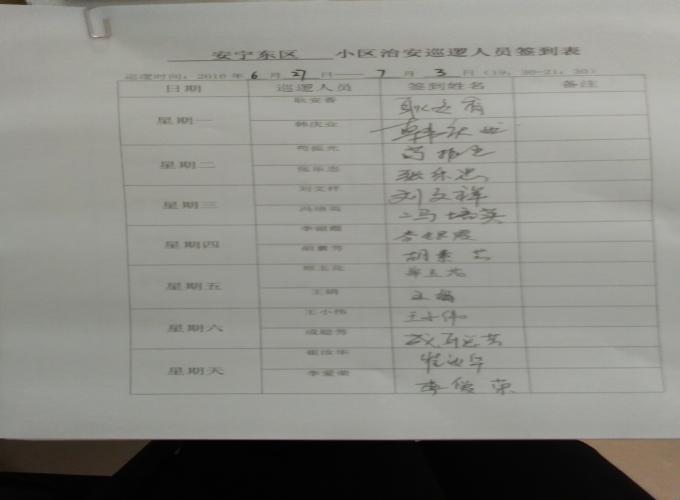 安宁东区 小区治安巡逻人员签到表
巡逻时间：2016年6月27日——7月3日（19：30-21：30）
日期 巡逻人员 签到姓名 备注
星期一 耿安香
韩庆业
星期二 苟振光
张东忠 张东忠
星期三 刘文祥 刘文祥
冯培英 冯培英
星期四 李银霞 李银霞
胡素芳 胡素芳
星期五
王娟 王娟
星期六 王小伟 王小伟
成聪芳
星期天 崔治华 崔治华
李爱荣 李爱荣